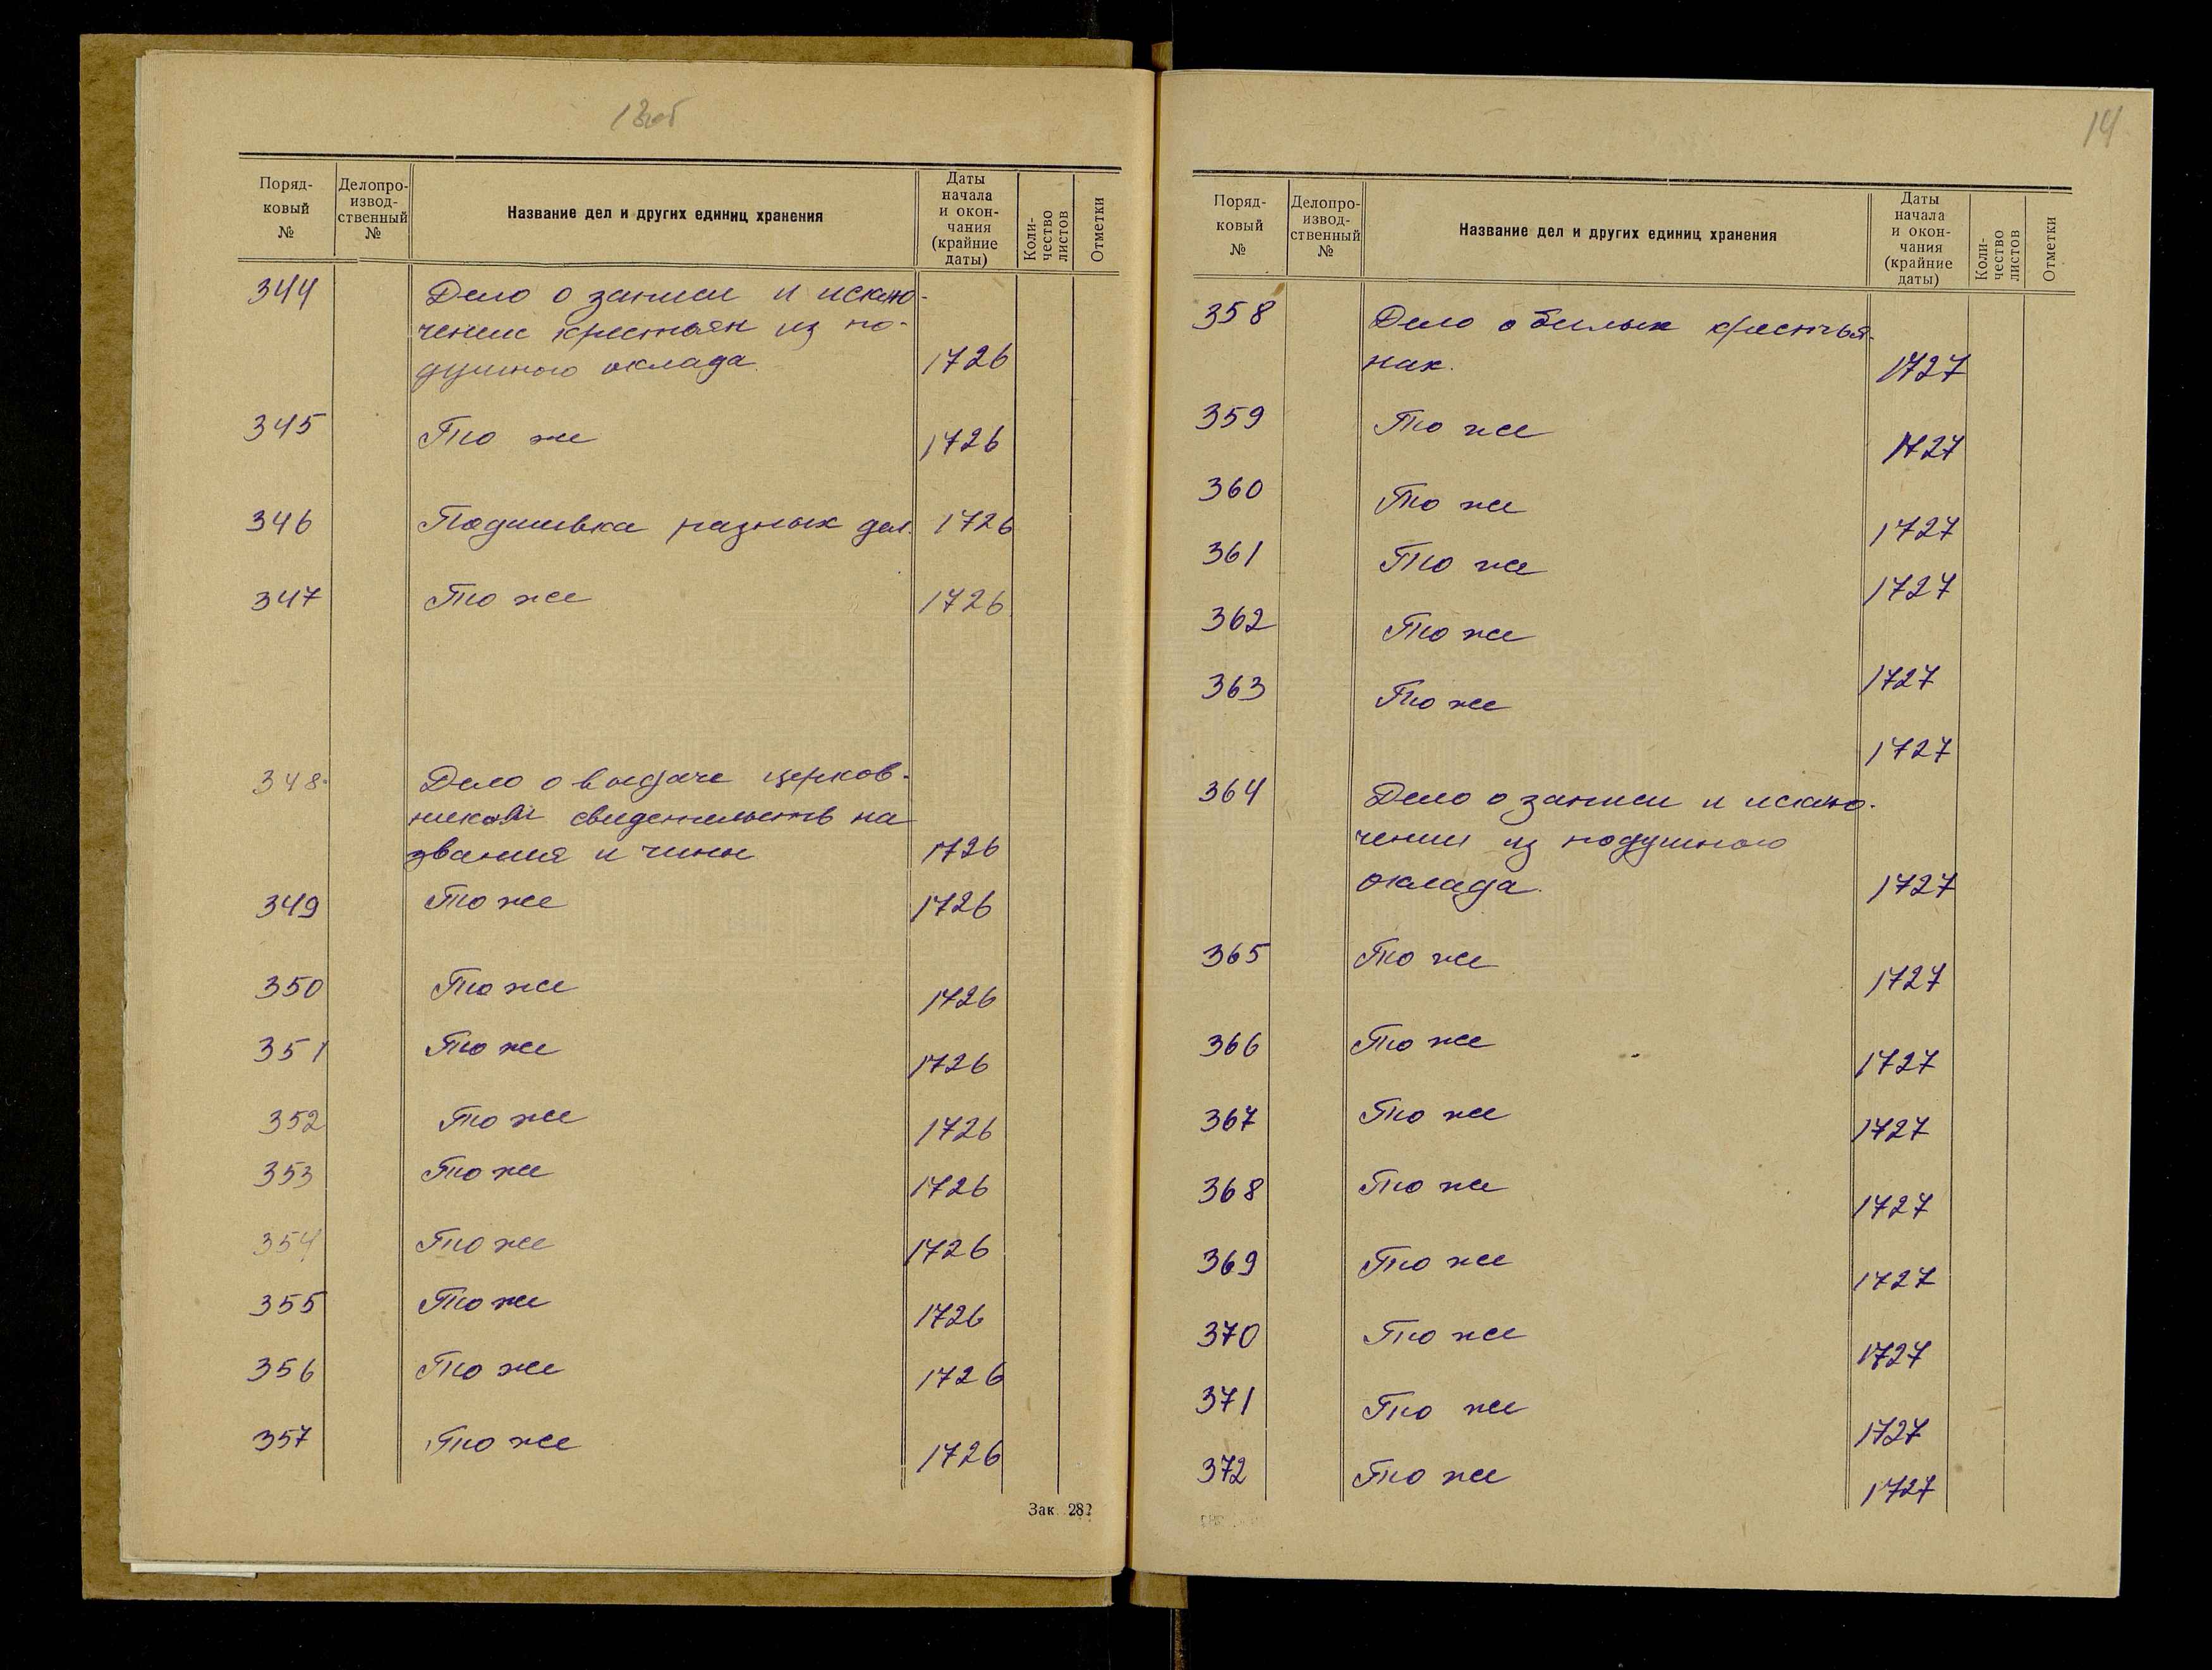 13об
Поряд-
ковый
№
Делопро-
извод-
ственный
№
Название дел и других единиц хранения
Даты
начала
и окон-
чания
(крайние
даты)
Коли-
чество
листов
Отметки
344 Дело о записи и исклю-
чении крестьян из по-
душного оклада. 1726
345 То же 1726
346 Подшивка разных дел. 1726
347 То же 1726
348 Дело о выдаче церков-
никам свидетельств на
звания и чины 1726
349 То же 1726
350 То же 1726
351 То же 1726
352 То же 1726
353 То же 1726
354 То же 1726
355 То же 1726
356 То же 1726
357 То же 1726
Зак. 282
14
Поряд-
ковый
№
Делопро-
извод-
ственный
№
Название дел и других единиц хранения
Даты
начала
и окон-
чания
(крайние
даты)
Коли-
чество
листов
Отметки
358 Дело о беглых крестья-
нах. 1727
359 То же 1727
360 То же 1727
361 То же 1727
362 То же 1727
363 То же 1727
364 Дело о записи и исклю-
чении из подушного
оклада. 1727
365 То же 1727
366 То же 1727
367 То же 1727
368 То же 1727
369 То же 1727
370 То же 1727
371 То же 1727
372 То же 1727